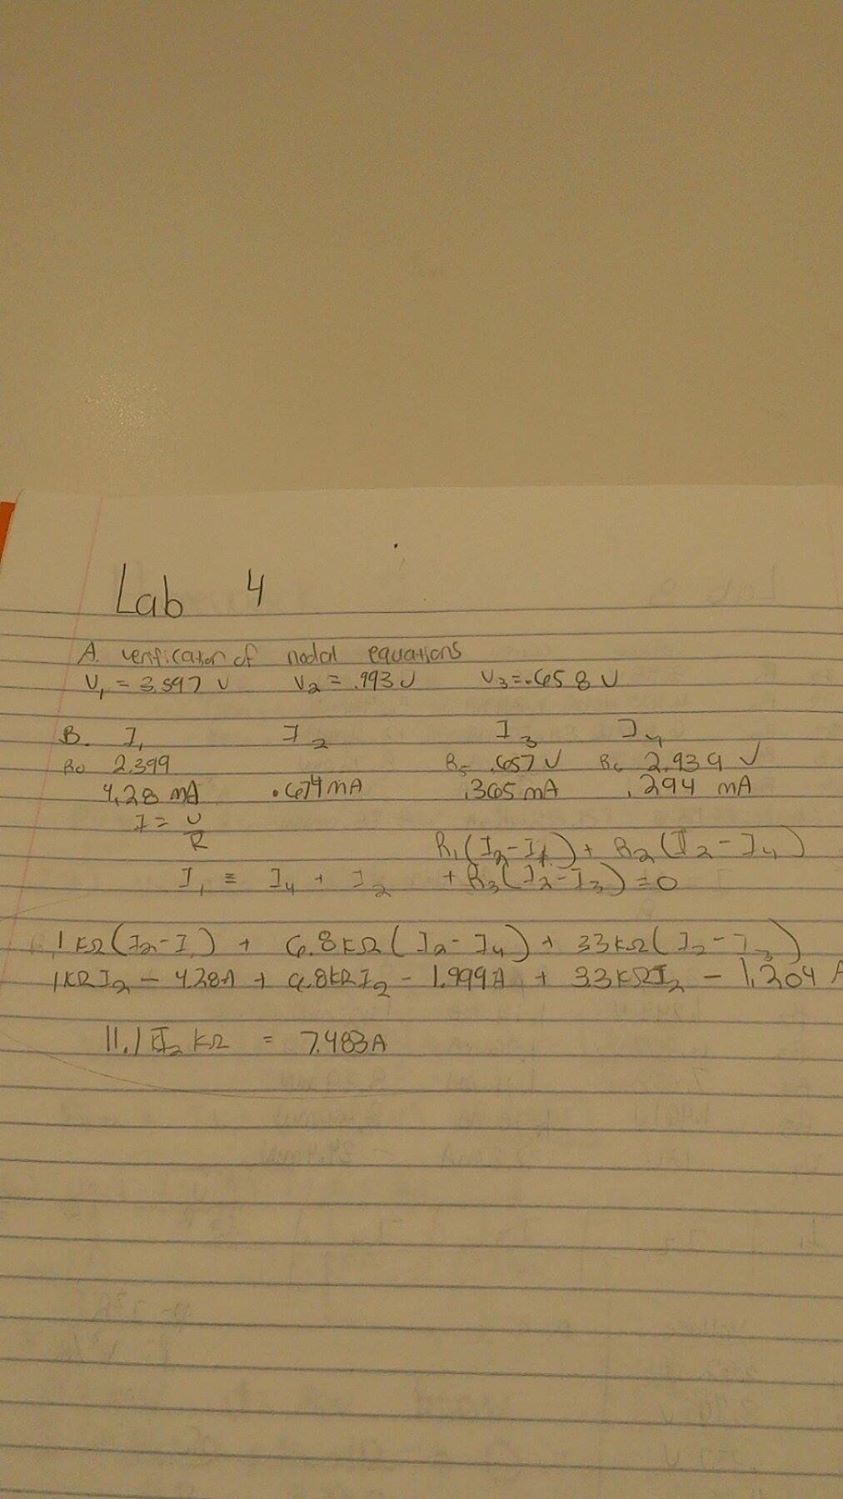 Lab 4
A. verification of nodal equations
V₁ = 3.597 V V₂ = .993 V V₃ = .658 V
B. I₁ I₂ I₃ I₄
2.399 R₅ .657 V R₆ 2.939 V
4.28 mA .674 mA .365 mA .294 mA
I = V/R
R₁(I₂-I₁) + R₂(I₂-I₄)
I₁ = I₄ + I₂ + R₃(I₂-I₃) = 0
1kΩ(I₂-I₁) + 6.8kΩ(I₂-I₄) + 33kΩ(I₂-I₃)
1kΩI₂ - 4.28A + 6.8kΩI₂ - 1.999A + 33kΩI₂ - 1.204 A
11.1 I₂ kΩ = 7.483A